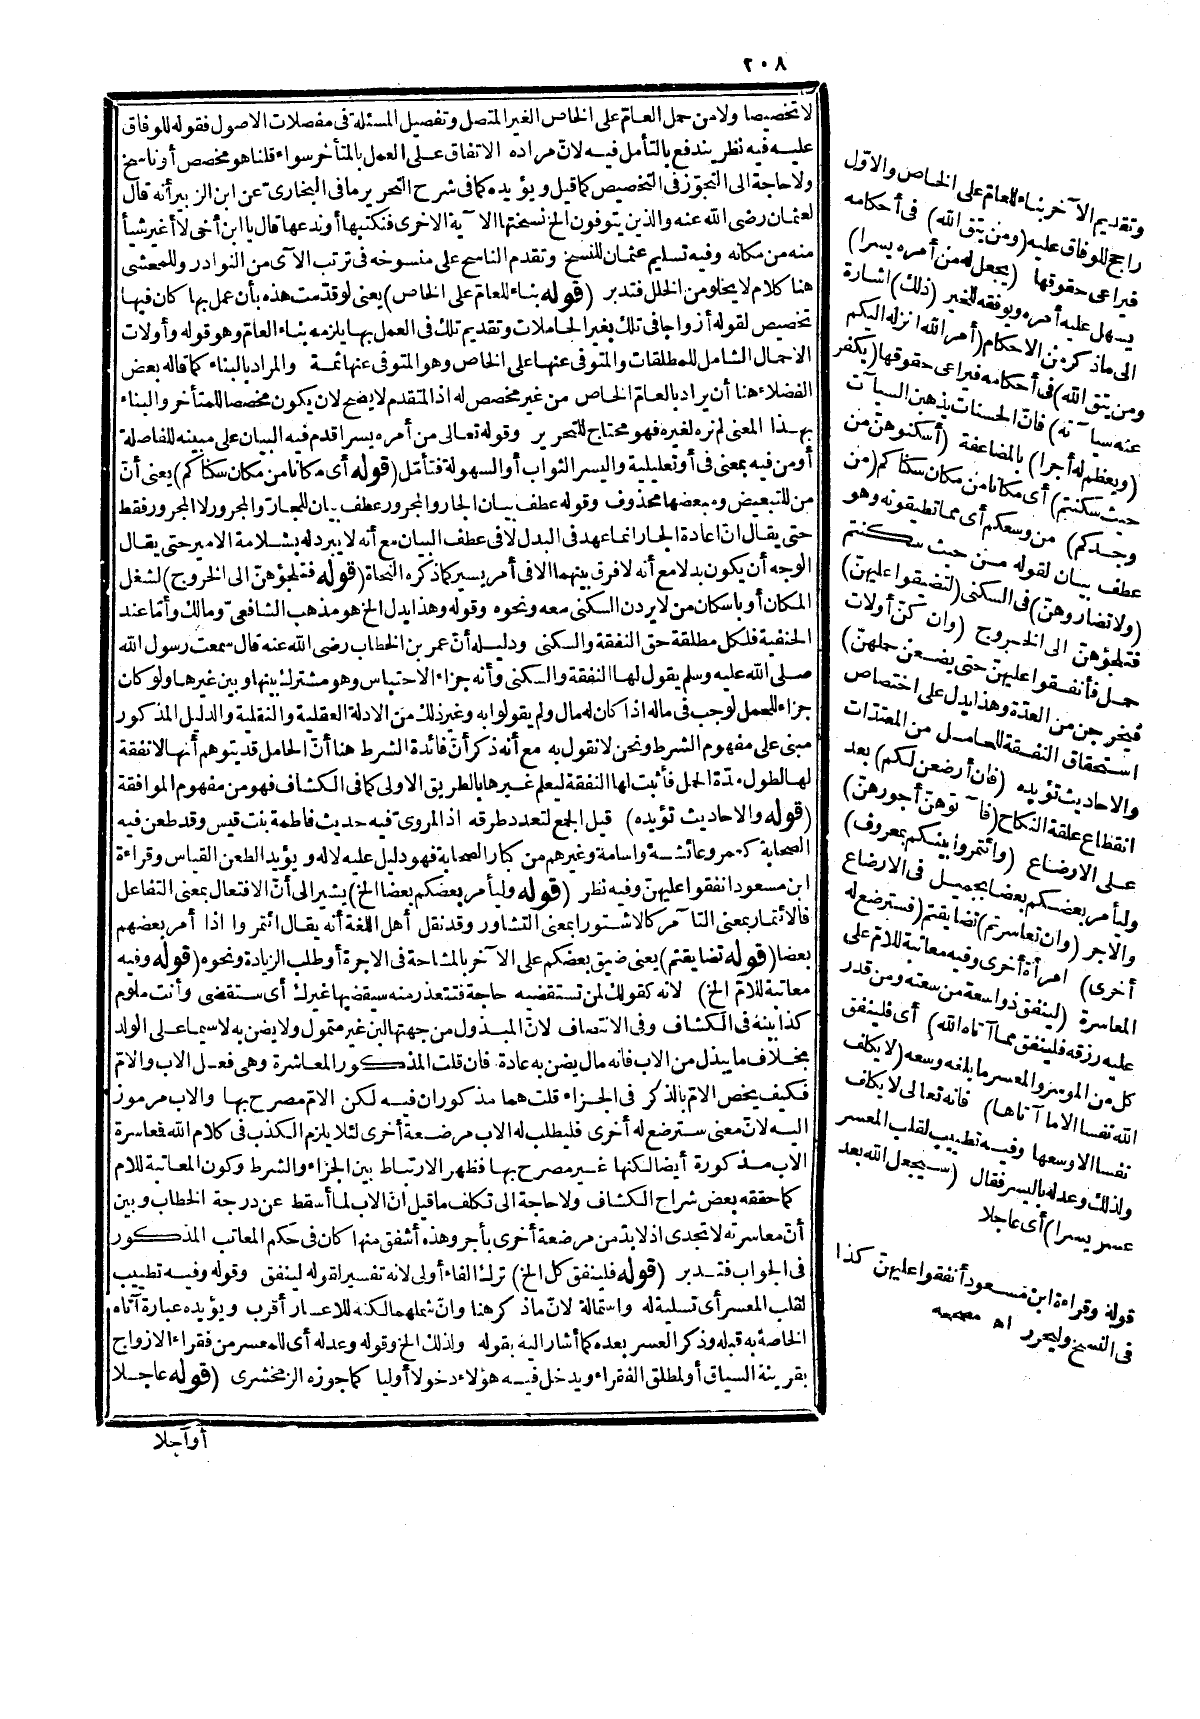 ٢٠٨
لا تخصيصا ولا من حمل العام على الخاص الغير المتصل وتفصيل المسئلة فى مفصلات الاصول فقوله للوفاق
عليه فيه نظر يندفع بالتأمل فيه لانّ مراده الاتفاق على العمل بالمتأخر سواء قلنا هو مخصص أو ناسخ
ولا حاجة الى التجوّز فى التخصيص كما قيل ويؤيده كما فى شرح التحرير ما فى البخارى عن ابن الزبير أنه قال
لعثمان رضى الله عنه والذين يتوفون الخ نسختها الآية الاخرى فنكتبها أوندعها قال يا ابن أخى لا أغير شيأ
منه من مكانه وفيه تسليم عثمان للنسخ وتقدم الناسخ على منسوخه فى ترتب الآى من النوادر وللمعشى
هنا كلام لا يخلو من الخلل فتدبر (قوله بناء للعام على الخاص) يعنى لو قدّمت هذه بأن عمل بها كان فيها
تخصيص لقوله أزواجا فى تلك بغير الحاملات وتقديم تلك فى العمل بها يلزمه بناء العام وهو قوله وأولات
الاحمال الشامل للمطلقات والمتوفى عنها على الخاص وهو المتوفى عنها ثمة والمراد بالبناء كما قاله بعض
الفضلاء هنا أن يراد بالعام الخاص من غير مخصص له اذ المتقدم لا يصح لان يكون مخصصا للمتأخر والبناء
بهذا المعنى لم نره لغيره فهو محتاج للتحرير وقوله تعالى من أمره يسرا قدم فيه البيان على مبينه للفاصلة
أو من فيه بمعنى فى أو تعليلية واليسر الثواب أو السهولة فتأمّل (قوله أى مكانا من مكان سكناكم) يعنى أنّ
من للتبعيض ومبعضها محذوف وقوله عطف بيان الجار والمجرور عطف بيان للجار والمجرور لا المجرور فقط
حتى يقال انّ اعادة الجار انما عهد فى البدل لا فى عطف البيان مع أنه لا يبرد له بسلامة الامير حتى يقال
الوجه أن يكون بدلا مع أنه لا فرق بينهما الا فى أمر يسير كما ذكره النحاة (قوله فتلجؤهنّ الى الخروج) لشغل
المكان أو باسكان من لا يردن السكنى معه ونحوه وقوله وهذا يدل الخ هو مذهب الشافعىّ ومالك وأمّا عند
الحنفية فلكل مطلقة حق النفقة والسكنى ودليله أنّ عمر بن الخطاب رضى الله عنه قال سمعت رسول الله
صلى الله عليه وسلم يقول لها النفقة والسكنى وأنه جزاء الاحتباس وهو مشترك بينها وبين غيرها ولو كان
جزاء للحمل لوجب فى ماله اذا كان له مال ولم يقولوا به وغير ذلك من الادلة العقلية والنقلية والدليل المذكور
مبنى على مفهوم الشرط ونحن لا نقول به مع أنه ذكر أنّ فائدة الشرط هنا أنّ الحامل قد يتوهم أنها لا نفقة
لها لطول مدّة الحمل فأثبت لها النفقة ليعلم غيرها بالطريق الاولى كما فى الكشاف فهو من مفهوم الموافقة
(قوله والاحاديث تؤيده) قيل الجمع لتعدد طرقه اذ المروى فيه حديث فاطمة بنت قيس وقد طعن فيه
الصحابة كعمر وعائشة وأسامة وغيرهم من كبار الصحابة فهو دليل عليه لا له ويؤيد الطعن القياس وقراءة
ابن مسعود أنفقوا عليهنّ وفيه نظر (قوله وليأمر بعضكم بعضا الخ) يشير الى أنّ الافتعال بمعنى التفاعل
فالائتمار بمعنى التآمر كالاشتوار بمعنى التشاور وقد نقل أهل اللغة أنه يقال ائتمروا اذا أمر بعضهم
بعضا (قوله تضايقتم) يعنى ضيق بعضكم على الآخر بالمشاحة فى الاجرة أو طلب الزيادة ونحوه (قوله وفيه
معاتبة للامّ الخ) لانه كقولك لمن تستقضيه حاجة فتتعذر منه سيقضيها غيرك أى ستقضى وأنت ملوم
كذا بينه فى الكشاف وفى الانتصاف لانّ المبذول من جهتها لبن غير متمول ولا يضن به لا سيما على الولد
بخلاف ما يبذل من الاب فانه مال يضن به عادة. فان قلت المذكور المعاشرة وهى فعل الاب والامّ
فكيف يخص الامّ بالذكر فى الجزاء قلت هما مذكوران فيه لكن الامّ مصرح بها والاب مرموز
اليه لانّ معنى سترضع له أخرى فليطلب له الاب مرضعة أخرى لئلا يلزم الكذب فى كلام الله فمعاسرة
الاب مذكورة أيضا لكنها غير مصرح بها فظهر الارتباط بين الجزاء والشرط وكون المعاتبة للام
كما حققه بعض شراح الكشاف ولا حاجة الى تكلف ما قيل انّ الاب لما أسقط عن درجة الخطاب وبين
أنّ معاسرته لا تجدى اذ لا بدّ من مرضعة أخرى بأجر وهذه أشفق منها كان فى حكم المعاتب المذكور
فى الجواب فتدبر (قوله فلينفق كل الخ) ترك الفاء أولى لانه تفسير لقوله لينفق وقوله وفيه تطييب
لقلب المعسر أى تسلية له واستمالة لانّ ما ذكر هنا وانّ شملهما لكنه للاعسار أقرب ويؤيده عبارة آتاه
الخاصة به قبله وذكر العسر بعده كما أشار اليه بقوله ولذلك الخ وقوله وعدله أى للمعسر من فقراء الازواج
بقرينة السياق أو لمطلق الفقراء ويدخل فيه هؤلاء دخولا أوليا كما جوزه الزمخشرى (قوله عاجلا
أو آجلا
وتقديم الآخر بناء للعام على الخاص والاوّل
راجح للوفاق عليه (ومن يتق الله) فى أحكامه
فيراعى حقوقها (يجعل له من أمره يسرا)
يسهل عليه أمره ويوفقه للخير (ذلك) اشارة
الى ما ذكر من الاحكام (أمر الله أنزله اليكم
ومن يتق الله) فى أحكامه فيراعى حقوقها (يكفر
عنه سيآته) فانّ الحسنات يذهبن السيآت
(ويعظم له أجرا) بالمضاعفة (أسكنوهنّ من
حيث سكنتم) أى مكانا من مكان سكناكم (من
وجدكم) من وسعكم أى مما تطيقونه وهو
عطف بيان لقوله من حيث سكنتم
(ولا تضاروهنّ) فى السكنى (لتضيقوا عليهنّ)
فتلجؤهنّ الى الخروج (وان كنّ أولات
حمل فأنفقوا عليهنّ حتى يضعن حملهنّ)
فيخرجن من العدّة وهذا يدل على اختصاص
استحقاق النفقة للحامل من المعتدّات
والاحاديث تؤيده (فان أرضعن لكم) بعد
انقطاع علقة النكاح (فآتوهنّ أجورهنّ)
على الارضاع (وائتمروا بينكم بمعروف)
وليأمر بعضكم بعضا بجميل فى الارضاع
والاجر (وان تعاسرتم) تضايقتم (فسترضع له
أخرى) امرأة أخرى وفيه معاتبة للامّ على
المعاسرة (لينفق ذو سعة من سعته ومن قدر
عليه رزقه فلينفق مما آتاه الله) أى فلينفق
كل من الموسر والمعسر ما بلغه وسعه (لا يكلف
الله نفسا الا ما آتاها) فانه تعالى لا يكلف
نفسا الا وسعها وفيه تطييب لقلب المعسر
ولذلك وعد له باليسر فقال (سيجعل الله بعد
عسر يسرا) أى عاجلا
قوله وقراءة ابن مسعود أنفقوا عليهنّ كذا
فى النسخ وليحرر اه مصححه